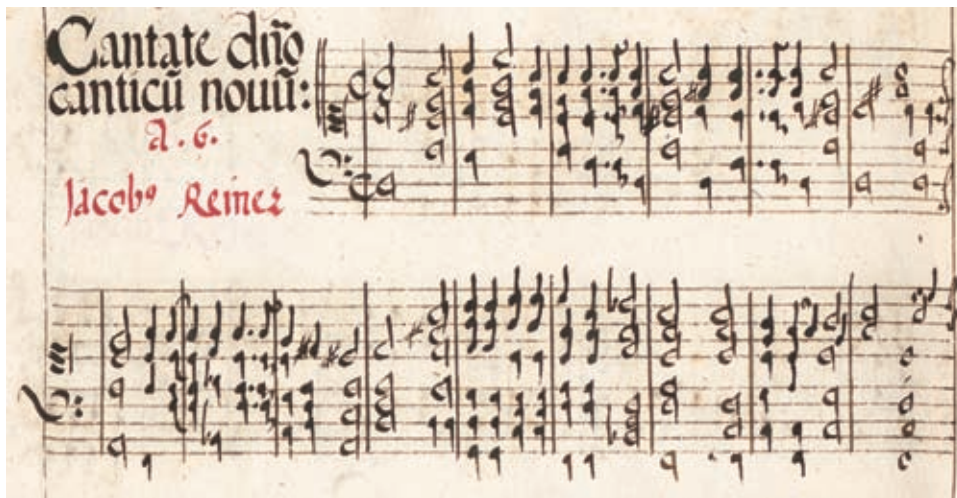 Cantate dño
canticū nouū:
A. 6.
Jacobꝰ Reiner